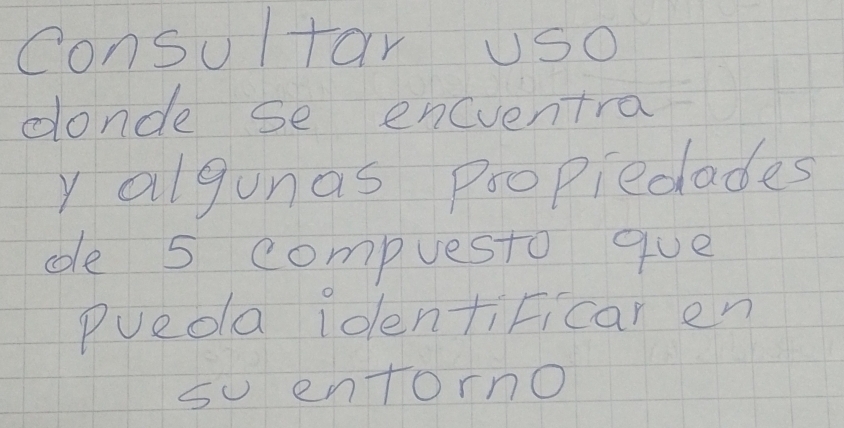 Consultar uso
donde se encuentra
y algunas propiedades
de 5 compuesto que
pueda identificar en
su entorno